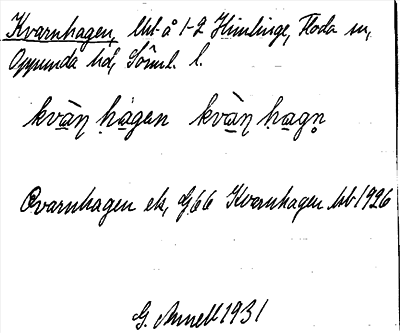 Kvarnhagen, lht å 1-2 Himlinge, Floda sn,
Oppunda hd, Söml. l.
kvàn̠ hagen kvàn̠ hagn̥
Qvarnhagen ek, G66 Kvarnhagen hb 1926
G. Annell 1931